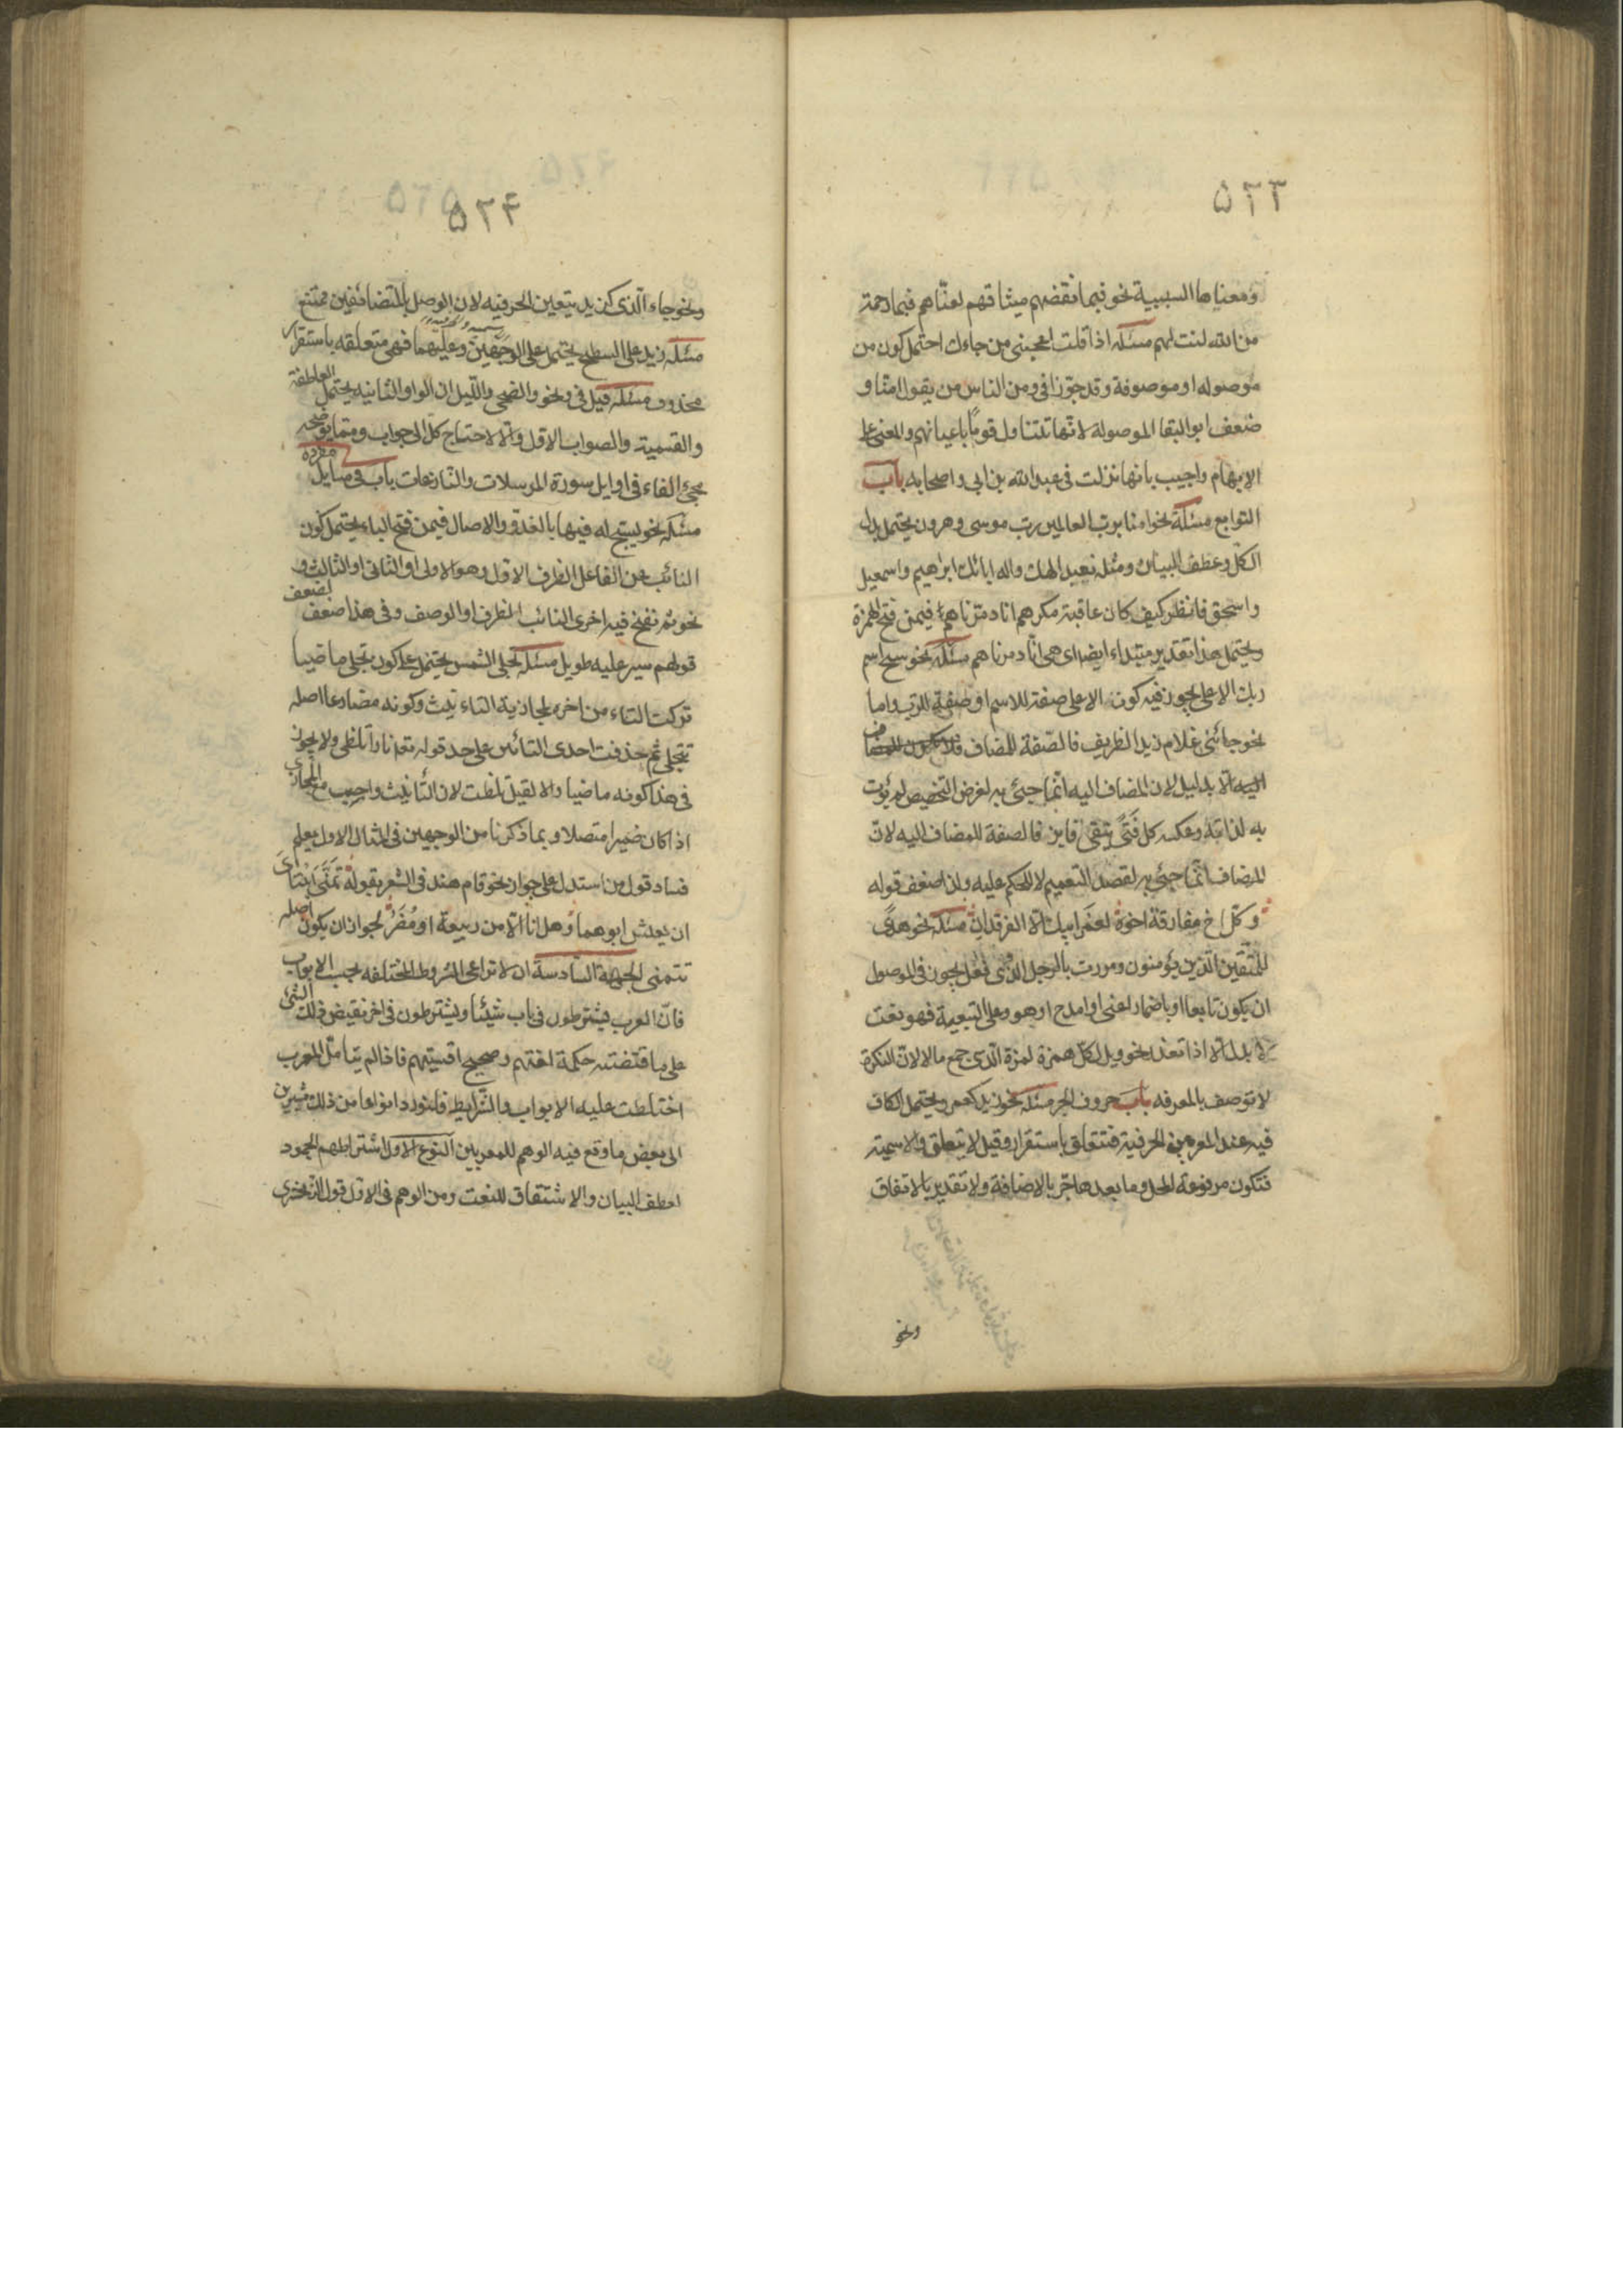 ٥٢٣
ومعناها السببية نحو فبما نقضهم ميثاقهم لعنّاهم فبما رحمة
من الله لنت لهم مسئلة اذا قلت اعجبنى من جاءك احتمل كون من
موصوله او موصوفة وقد جوّزا فى ومن الناس من يقول امنّا و
ضعف ابو البقا الموصولة لانّها تتناول قومًا باعيانهم والمعنى على
الابهام واجيب بانها نزلت فى عبد الله بن ابى واصحابه باب
التوابع مسئلة نحو امنا برب العالمين رب موسى وهرون يحتمل بدل
الكل وعطف البيان ومثله نعبد الهك واله ابائك ابراهيم واسمعيل
واسحق فانظر كيف كان عاقبة مكرهم انا دمّرناهم فيمن فتح الهمزة
ويحتمل هذا تقدير مبتداء ايضا اى هى انّا دمرناهم مسئلة نحو سبح اسم
ربك الاعلى يجوز فيه كون الاعلى صفة للاسم او صفة للرب واما
نحو جائنى غلام زيد الظريف فالصّفة للمضاف فلا للمضاف
اليه الا بدليل لان المضاف اليه انّما جيئ به لغرض التخصيص لم يؤت
به لذاته وعكسه كل فَتًى يتقى فايز فالصفة للمضاف اليه لانّ
المضاف انّما جيئ به لقصد التعميم لا للحكم عليه ولذا ضعف قوله
وكلّ اخ مفارقة اخوه لعَمْر ابيك الا الفرقدان مسئلة نحو هدًى
للمتّقين الّذين يؤمنون ومررت بالرجل الّذى فعل يجوز فى الموصول
ان يكون تابعا او باضمار اعنى او امدح او هو وعلى التبعية فهو نعت
لا بدل الا اذا تعذر نحو ويل لكلّ همزة لمزة الّذى جمع مالا لانّ النكرة
لا توصف بالمعرفه باب حروف الجر مسئلة نحو زيد كعمر ويحتمل الكاف
فيه عند المعربين الحرفية فتتعلق باستقرار وقيل لا يتعلق والاسمية
فتكون مرفوعة المحل وما بعدها جرّ بالاضافة ولا تقدير بالاتفاق
ونحو
٥٢٤
ونحو جاء الّذى كزيد يتعين الحرفيه لان الوصل بالمتضائفين ممتنع
مسئلة زيد على السطح يحتمل على الوجهين وعليهما فهى متعلقه باستقرار
محذوف مسئله قيل فى ونحو والضحى واللّيل ان الواو الثانيه يحتمل العاطفة
والقسمية والصواب الاول والّا لاحتاج كلّ الى جواب وممّا يوضحه
مجئ الفاء فى اوايل سورة المرسلات والنّازعات باب فى مسايل مفردة
مسئله نحو يسبح له فيها بالغدوّ والاصال فيمن فتح الباء يحتمل كون
النائب عن الفاعل الظرف الاول وهو الاولى او الثانى او الثالث و
نحو ثم نفخ فيه اخرى النائب الظرف او الوصف وفى هذا ضعف لضعف
قولهم سير عليه طويل مسئلة تجلى الشمس يحتمل كون تجلى ماضيا
تركت التاء من اخره لمجازية التاءنيث وكونه مضارعا اصله
تتجلى ثم حذفت احدى التائين على حد قوله تعه نارا تلظى ولا يجوز
فى هذا كونه ماضيا والا لقيل تلظت لان التأنيث واجب مع المجازى
اذا كان ضميرا متصلا وبما ذكرنا من الوجهين فى المثال الاول يعلم
فساد قول من استدل على جواز نحو قام هند فى الشعر بقوله تَمَنَّى ابْنَتاىَ
ان يعيش ابوهما وهل انا الّا من ربيعة او مُضَرُ لجواز ان يكون اصله
تتمنى الجهة السّادسة ان لا تراعى الشروط المختلفه بحسب الابواب
فانّ العرب يشترطون فى باب شيئا ويشترطون فى اخر نقيض ذلك الشئ
على ما اقتضته حكمة لغتهم وصحيح اقيستهم فاذا لم يتأمّل المعرب
اختلطت عليه الابواب والشّرايط فلنورد انواعا من ذلك مشيرين
الى بعض ما وقع فيه الوهم للمعربين النوع الاول اشتراطهم الجمود
لعطف البيان والاشتقاق للنعت ومن الوهم فى الاول قول الزّمخشرى